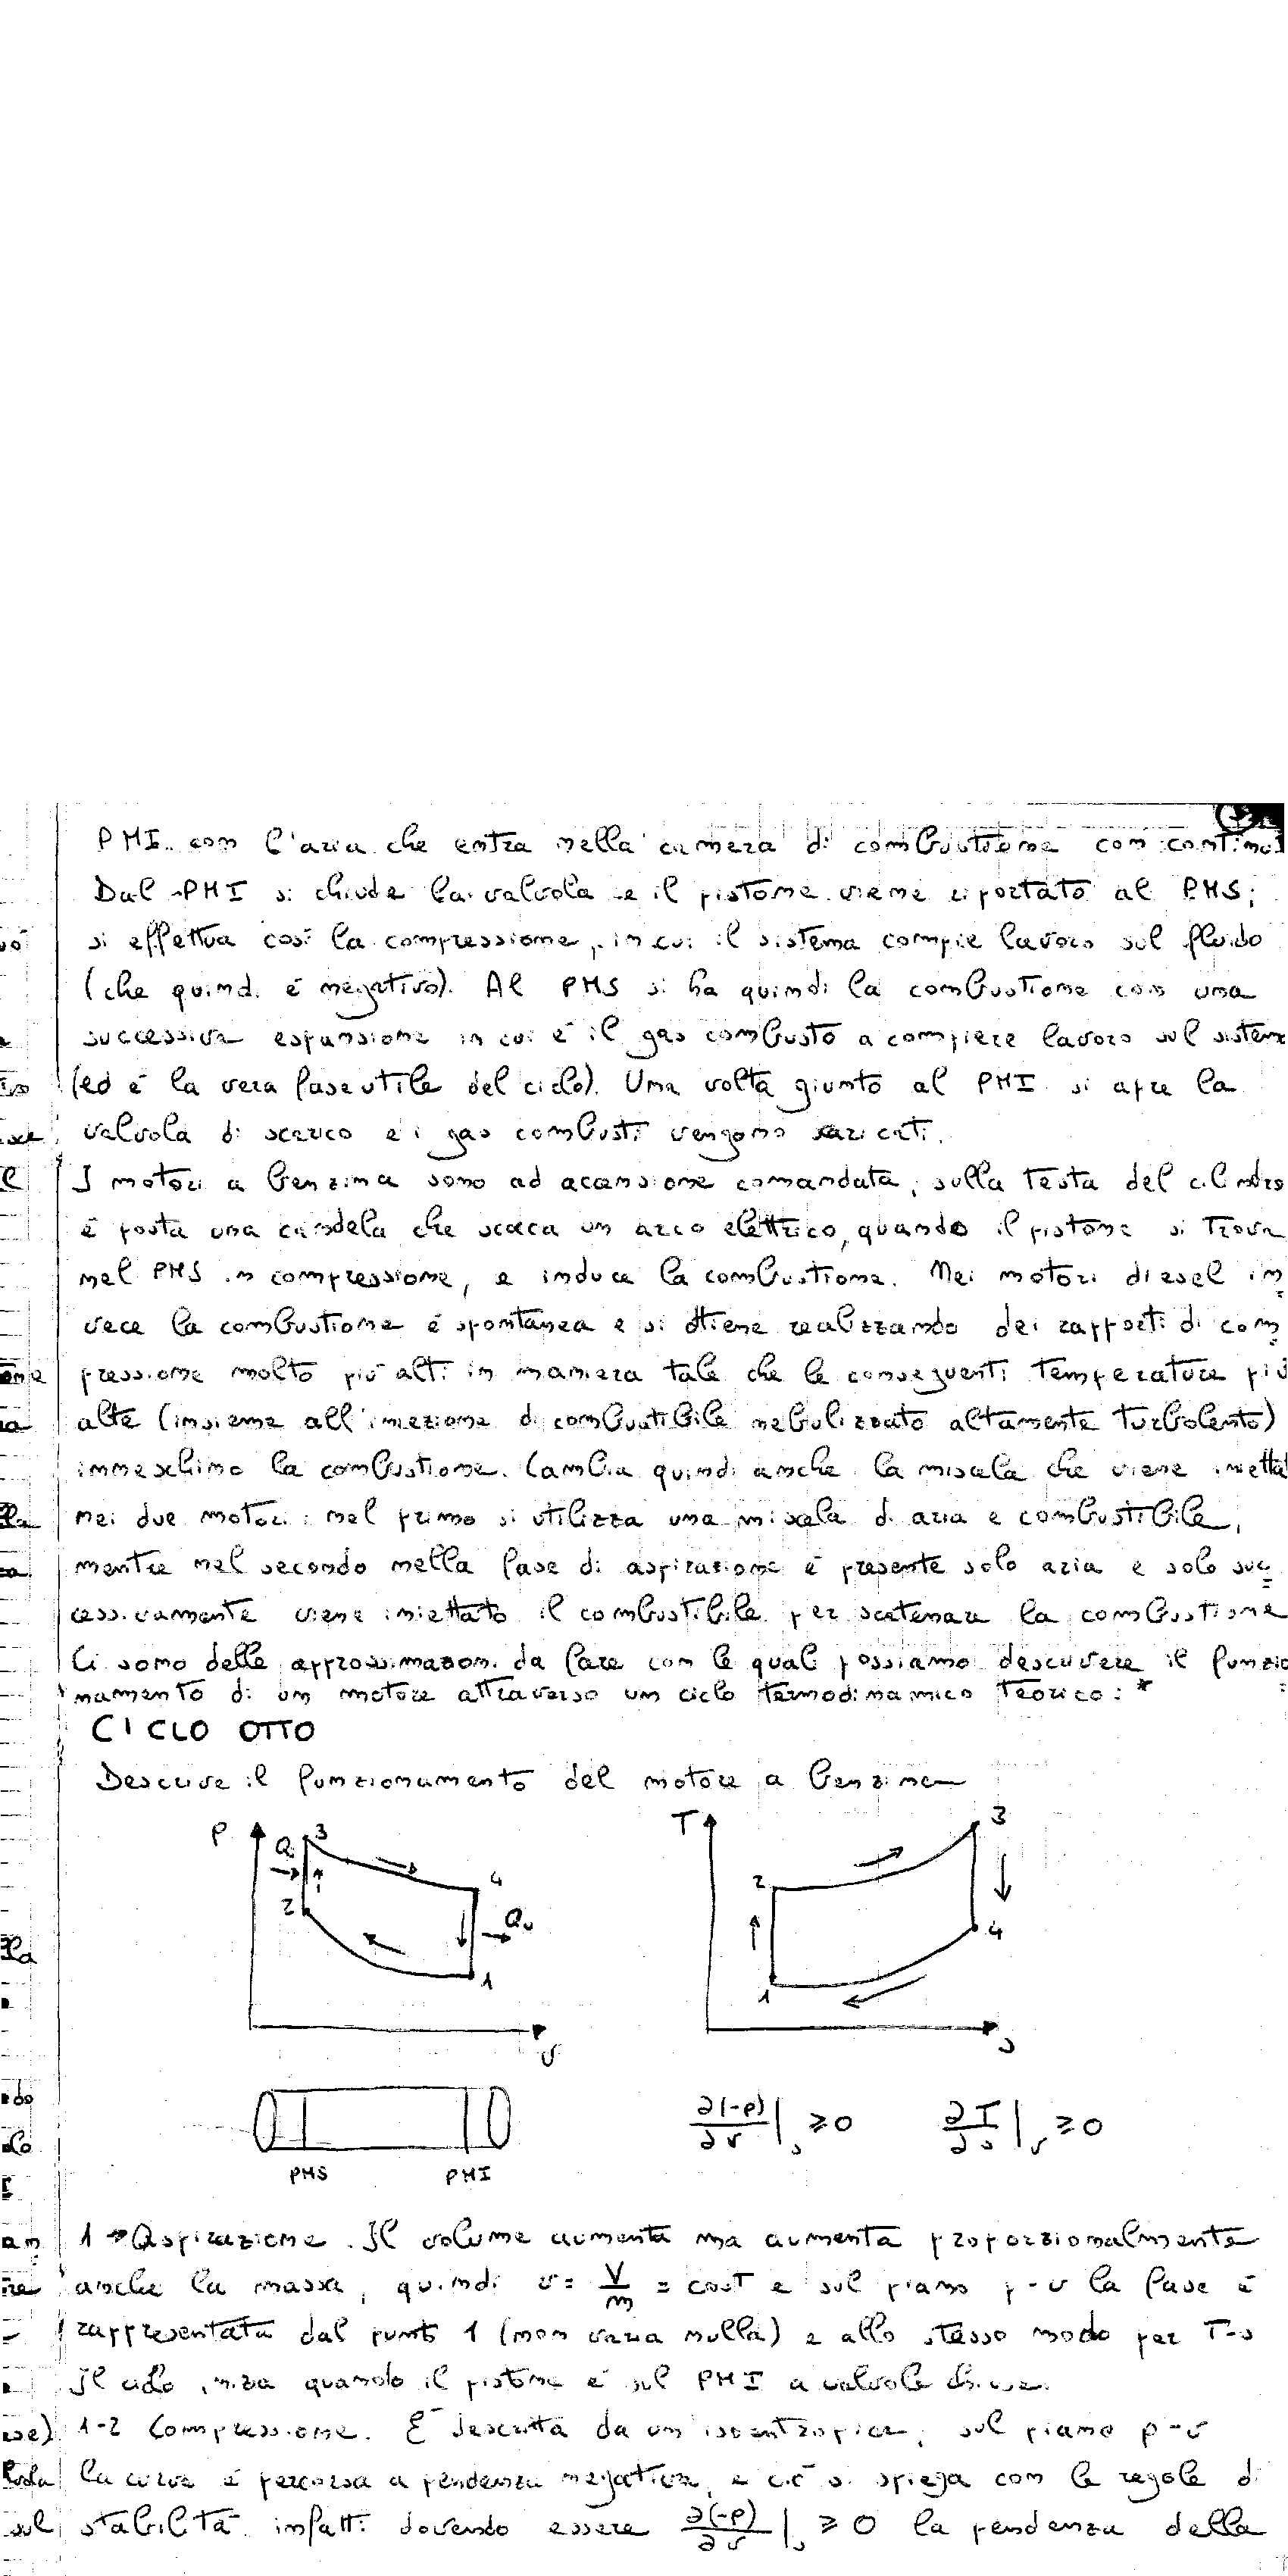 PMI con l'aria che entra nella camera di combustione con continui
Dal PMI si chiude la valvola e il pistone viene riportato al PMS;
si effettua così la compressione, in cui il sistema compie lavoro sul fluido
(che quindi è negativo). Al PMS si ha quindi la combustione con una
successiva espansione in cui è il gas combusto a compiere lavoro sul sistema
(ed è la vera fase utile del ciclo). Una volta giunto al PMI si apre la
valvola di scarico e i gas combusti vengono scaricati.
I motori a benzina sono ad accensione comandata, sulla testa del cilindro
è posta una candela che scocca un arco elettrico, quando il pistone si trova
nel PMS in compressione, e induce la combustione. Nei motori diesel in
vece la combustione è spontanea e si ottiene realizzando dei rapporti di com
pressione molto più alti in maniera tale che le conseguenti temperature più
alte (insieme all'iniezione di combustibile nebulizzato altamente turbolento)
inneschino la combustione. Cambia quindi anche la miscela che viene iniettat
nei due motori: nel primo si utilizza una miscela di aria e combustibile,
mentre nel secondo nella fase di aspirazione è presente solo aria e solo suc
cessivamente viene iniettato il combustibile per scatenare la combustione
Ci sono delle approssimazioni da fare con le quali possiamo descrivere il funzio
namento di un motore attraverso un ciclo termodinamico teorico: *
CICLO OTTO
Descrive il funzionamento del motore a benzina
P Q 3 4 2 1 v
T 3 2 4 1 s
PMS PMI
∂(-p)/∂v |s ≥0 ∂T/∂s |v ≥0
1 → Aspirazione. Il volume aumenta ma aumenta proporzionalmente
anche la massa, quindi v = V/m = cost e sul piano p-v la fase è
rappresentata dal punto 1 (non varia nulla) e allo stesso modo per T-s
Il ciclo inizia quando il pistone è sul PMI a valvole chiuse.
1-2 Compressione. È descritta da un'isoentropica, sul piano p-v
la curva è percorsa a pendenza negativa, e ciò si spiega con le regole di
stabilità infatti dovendo essere ∂(-p)/∂v |s ≥ 0 la pendenza della